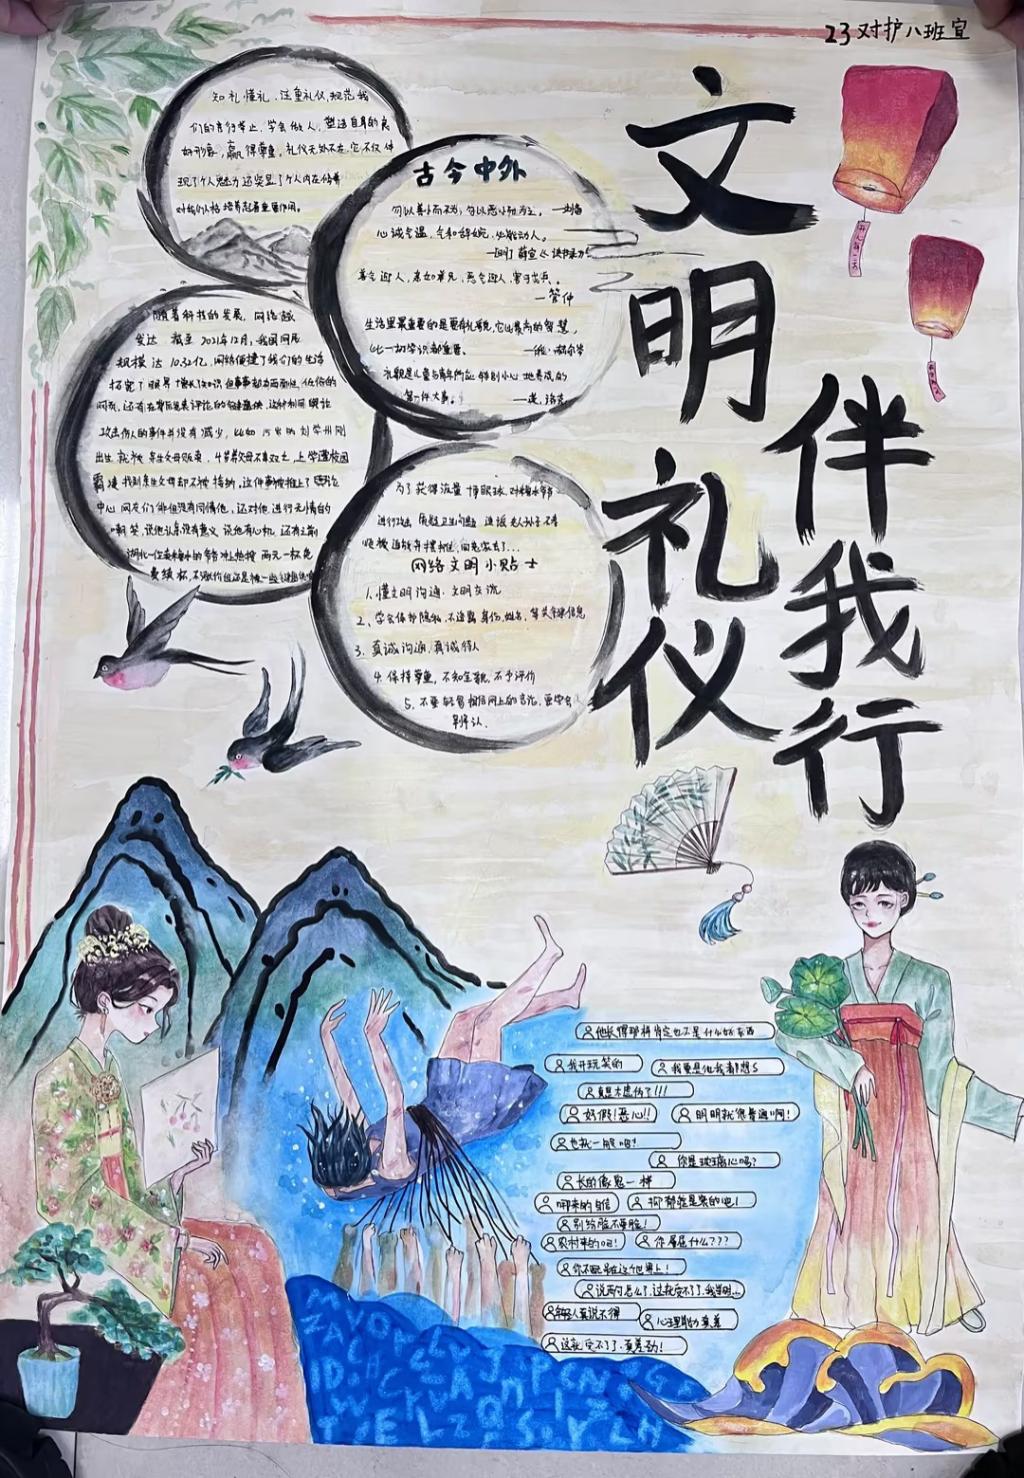 23对护八班宣
文明礼仪
伴我行
知礼懂礼，注重礼仪规范我
们的言行举止，学会做人，塑造自身的良
好形象，赢得尊重。礼仪无处不在，它不仅体
现了个人魅力还突显了个人内在修养
对我们人格培养起着重要作用。
古今中外
勿以善小而不为，勿以恶小而为之。—刘备
心诚气温，气和辞婉，必能动人。
—明）薛宣《读书录》
善气迎人，亲如弟兄，恶气迎人，害于戈兵。
—管仲
生活里最重要的是要有礼貌，它比最高的智慧，
比一切学识都重要。
礼貌是儿童与青年所应特别小心地养成的
第一件大事。
随着科技的发展，网络越
发达 截至2021年12月，我国网民
规模达10.32亿，网络便捷了我们的生活
拓宽了眼界增长了知识 但事事都有两面性，
攻击伤人的事件并没有减少，比如 刘学州刚
出生就被亲生父母贩卖，4岁养父母不幸双亡，上学遭校园
霸凌 找到亲生父母却不被接纳，这件事被推上了舆论
中心 网友们非但没有同情他，还对他进行无情的
嘲笑，说他认亲没有意义 说他有心机，还有之前
湖北一位卖米酒水的爷爷冲上热搜 两元一杯免
费续杯，不涨价
为了获得流量 博眼球，对
进行攻击 质疑卫生问题
网络文明小贴士
1、懂文明沟通，文明交流
2、学会保护隐私，不透露身份，姓名，等关键信息
3、真诚沟通，真诚待人
4、保持尊重，不知全貌，不予评价
5、不要轻易相信网上的言论，要学会
辨认。
他长得那样肯定也不是什么好东西
我开玩笑的
我要是他我都想S
真是太虚伪了!!!
好假！恶心!!
明明就很普通啊！
也就一般吧？
你是玻璃心吗？
长的像鬼一样
哪来的自信
抑郁症是装的吧！
别给脸不要脸！
农村来的吧！
你算是什么???
你不配是在这个世界上！
年轻人真说不得
心理承受力真差
这就受不了了，真差劲！